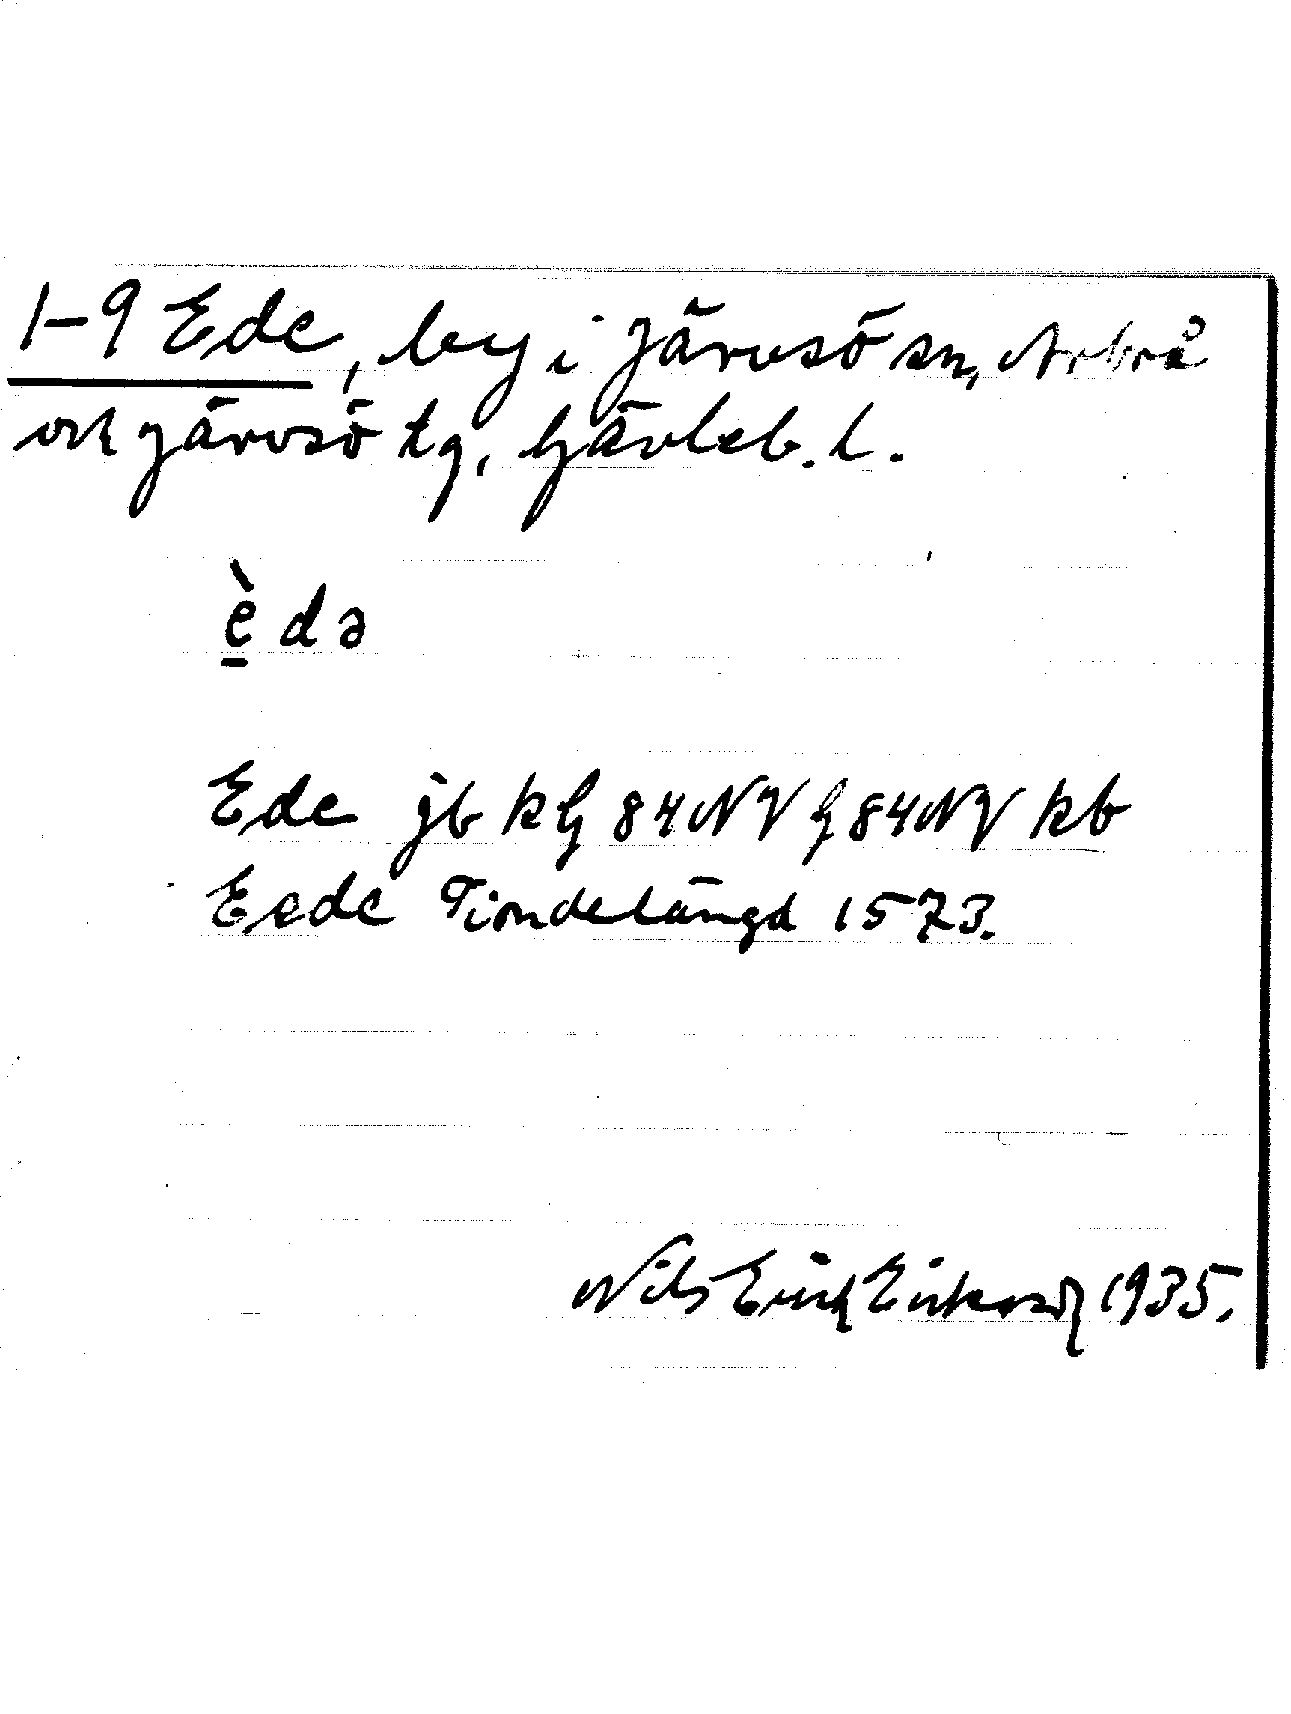 1-9 Ede, by i Järvsö sn, Arbrå
och Järvsö tg, Gävleb. l.
è̱də
Ede jb kG 84NV G 84NV kb
Eede Tiondelängd 1573.
Nils Erik Eriksson 1935.